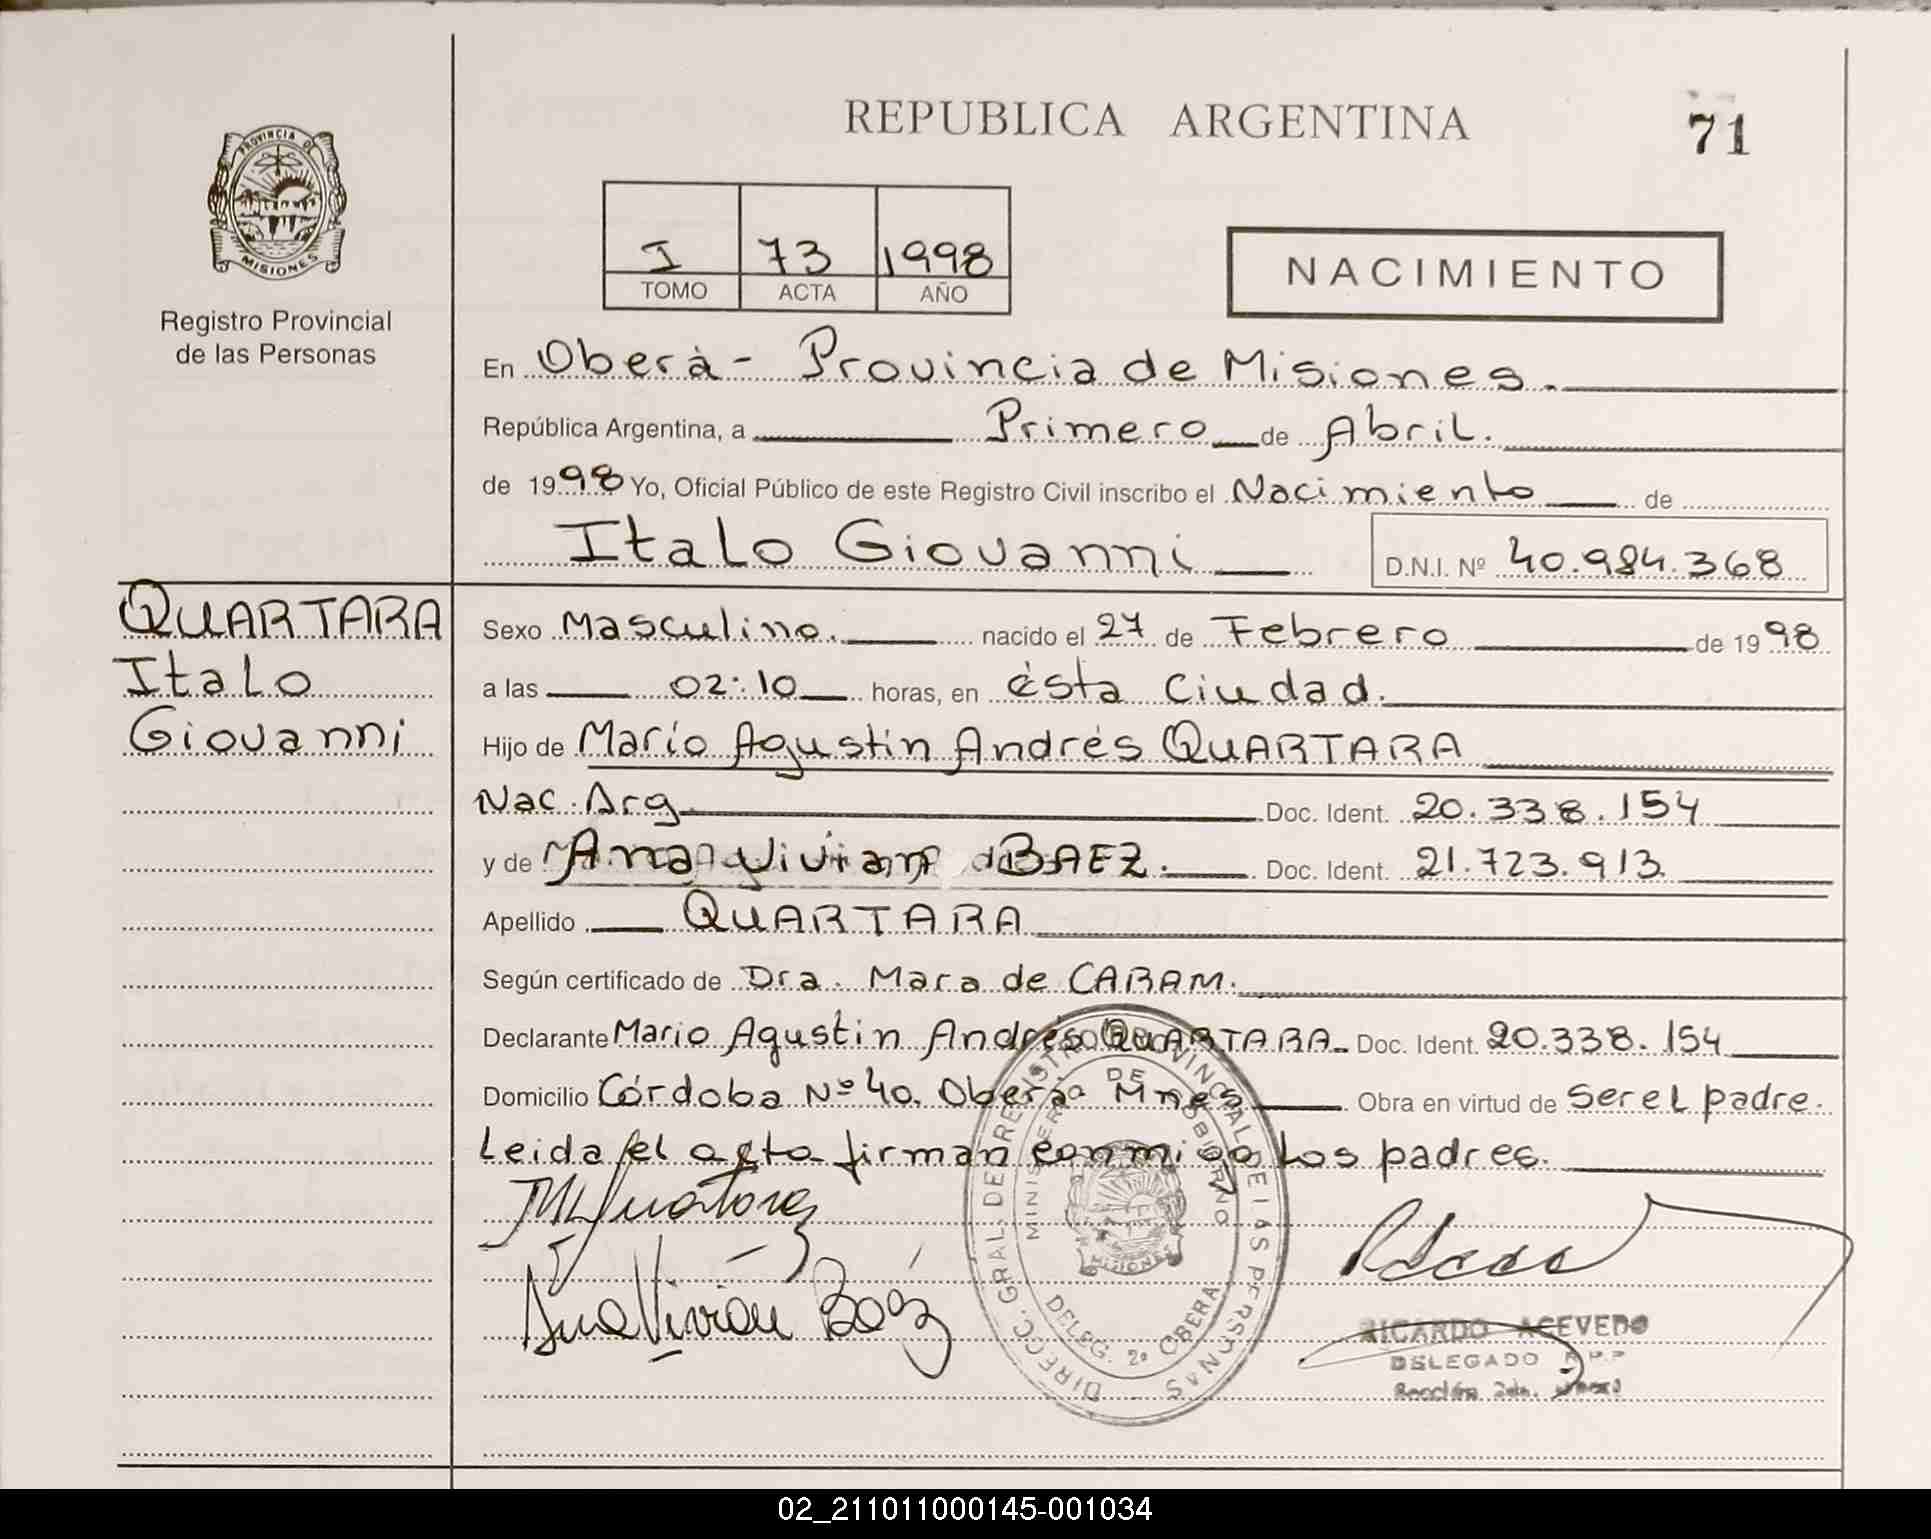 REPUBLICA ARGENTINA
71
PROVINCIA DE
MISIONES
Registro Provincial
de las Personas
I 73 1998
TOMO ACTA AÑO
NACIMIENTO
En Oberà - Provincia de Misiones.
República Argentina, a Primero de Abril.
de 1998 Yo, Oficial Público de este Registro Civil inscribo el Nacimiento de
Italo Giovanni D.N.I. Nº 40.984.368
QUARTARA
Italo
Giovanni
Sexo Masculino. nacido el 27 de Febrero de 1998
a las 02:10 horas, en ésta Ciudad.
Hijo de Mario Agustín Andrés QUARTARA
Nac. Arg. Doc. Ident. 20.338.154
y de Ana Vivian BAEZ. Doc. Ident. 21.723.913
Apellido QUARTARA
Según certificado de Dra. Mara de CARAM.
Declarante Mario Agustín Andrés QUARTARA Doc. Ident. 20.338.154
Domicilio Córdoba Nº 40. Oberá Mnes Obra en virtud de Ser el padre.
Leida el acta firman conmigo los padres.
Ana Vivian Baéz
DIRECC. GRAL. DE REGISTRO PROVINCIAL DE LAS PERSONAS
MINISTERIO DE GOBIERNO
MISIONES
DELEG. 2ª OBERA
RICARDO ACEVEDO
DELEGADO R.P.P
02_211011000145-001034